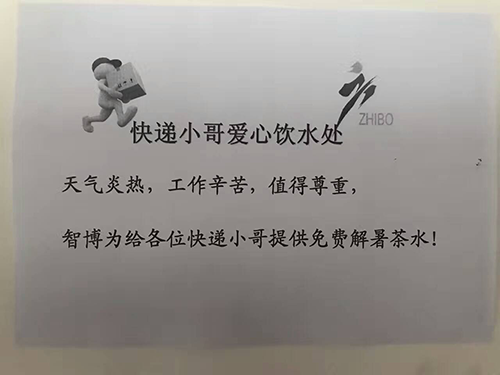 ZHIBO
快递小哥爱心饮水处
天气炎热，工作辛苦，值得尊重，
智博为给各位快递小哥提供免费解暑茶水！